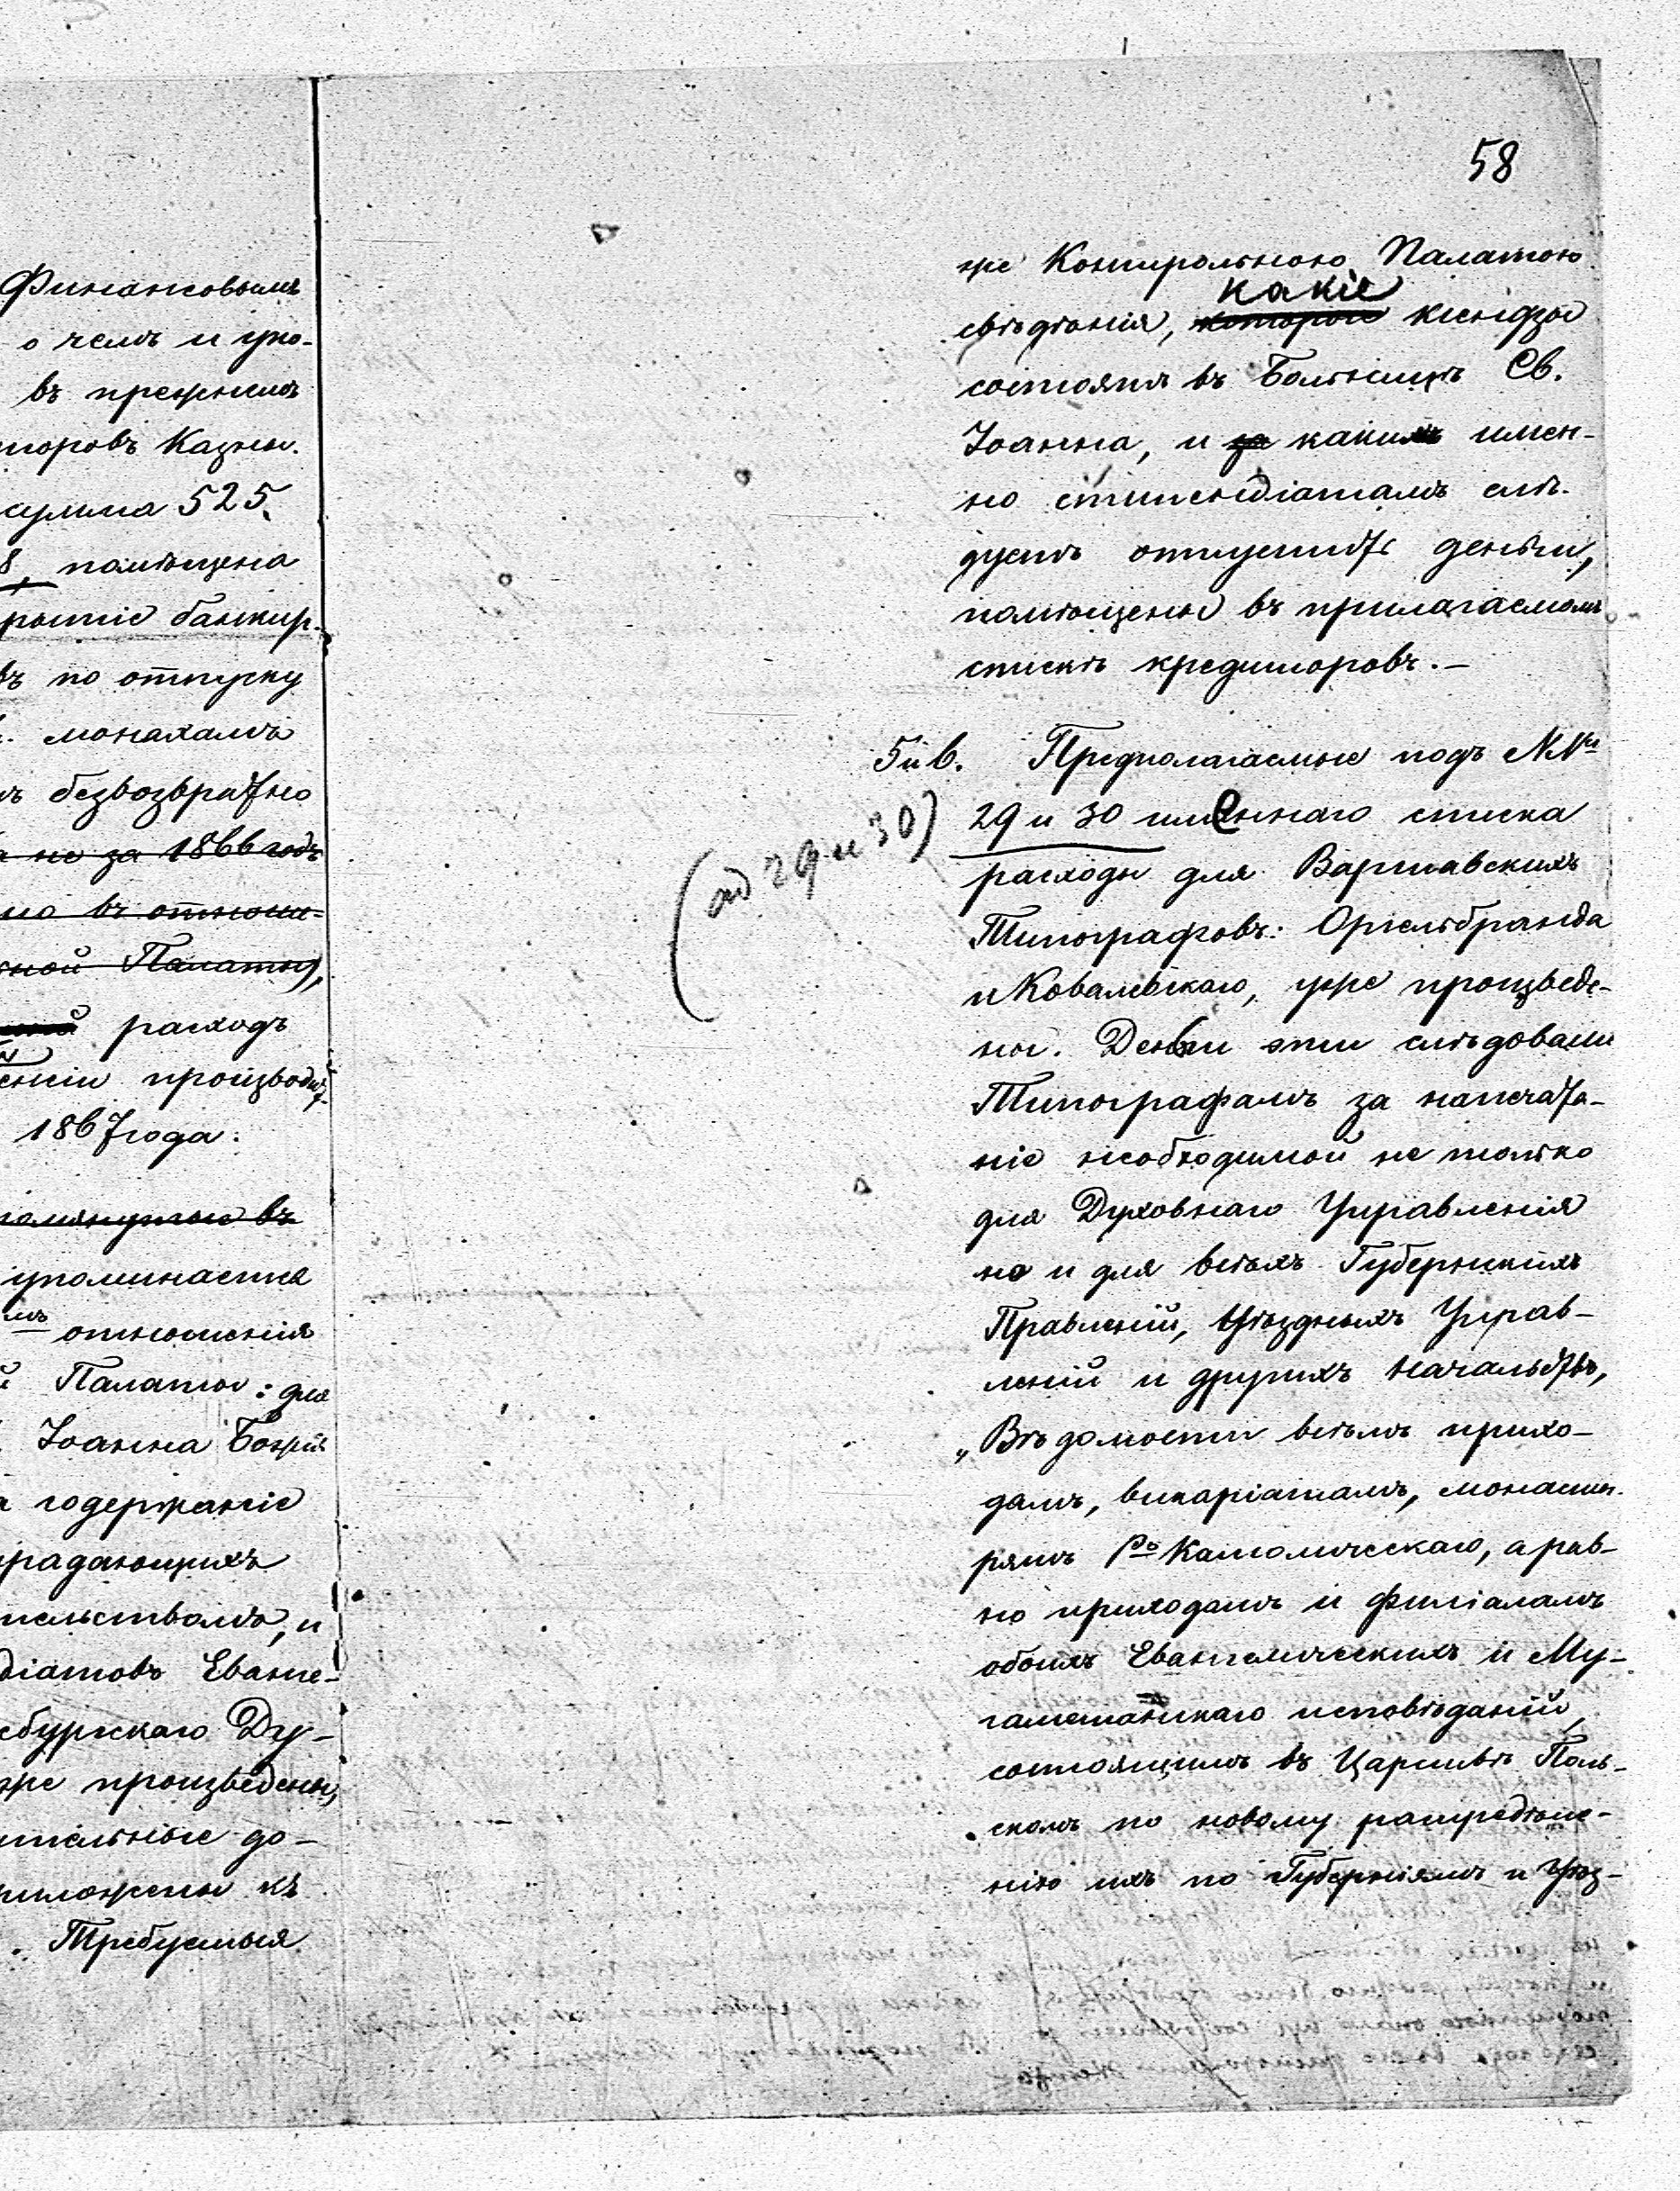 Финансовымъ
о чемъ и упо-
въ прежнимъ
торовъ Казны.
сумма 525.
8, помѣщена
рытіе банкир-
въ по отпуску
монахамъ
безвозвратно
не за 1866 годъ
но въ отноше-
ной Палаты),
расходъ
еніи производит-
1867 года.
помянутыи въ
упоминается
мъ отношенія
й Палаты: для
Іоанна Божія
содержаніе
традающихъ
тельствомъ, и
діатовъ Еванге-
сбургскаго Ду-
же произведены,
ительные до-
риложены къ
Требуемыя
58
же Контрольною Палатою
какіе
свѣдѣнія, которые ксендзы
состоятъ въ Больницѣ Св.
Іоанна, и за какимъ имен-
но стипендіатамъ слѣ-
дуетъ отпустить деньги,
помѣщены въ прилагаемомъ
спискѣ кредиторовъ.-
5 и 6. Предполагаемые подъ №№
(од 29 и 30)
29 и 30 именнаго списка
расходы для Варшавскихъ
Типографовъ: Оргельбранда
и Ковалевскаго, уже произведе-
ны. Деньги эти слѣдовали
Типографамъ за напечата-
ніе необходимой не только
для Духовнаго Управленія
но и для всѣхъ Губернскихъ
Правленій, Уѣздныхъ Управ-
леній и другихъ Начальствъ,
„Вѣдомости всѣмъ прихо-
дамъ, викаріатамъ, монасты-
рямъ Ро Католическаго, а рав-
но приходамъ и филіаламъ
обоихъ Евангелическихъ и Му-
гаметанскаго исповѣданій,
состоящимъ въ Царствѣ Поль-
скомъ по новому распредѣле-
нію ихъ по Губерніямъ и Уѣз-